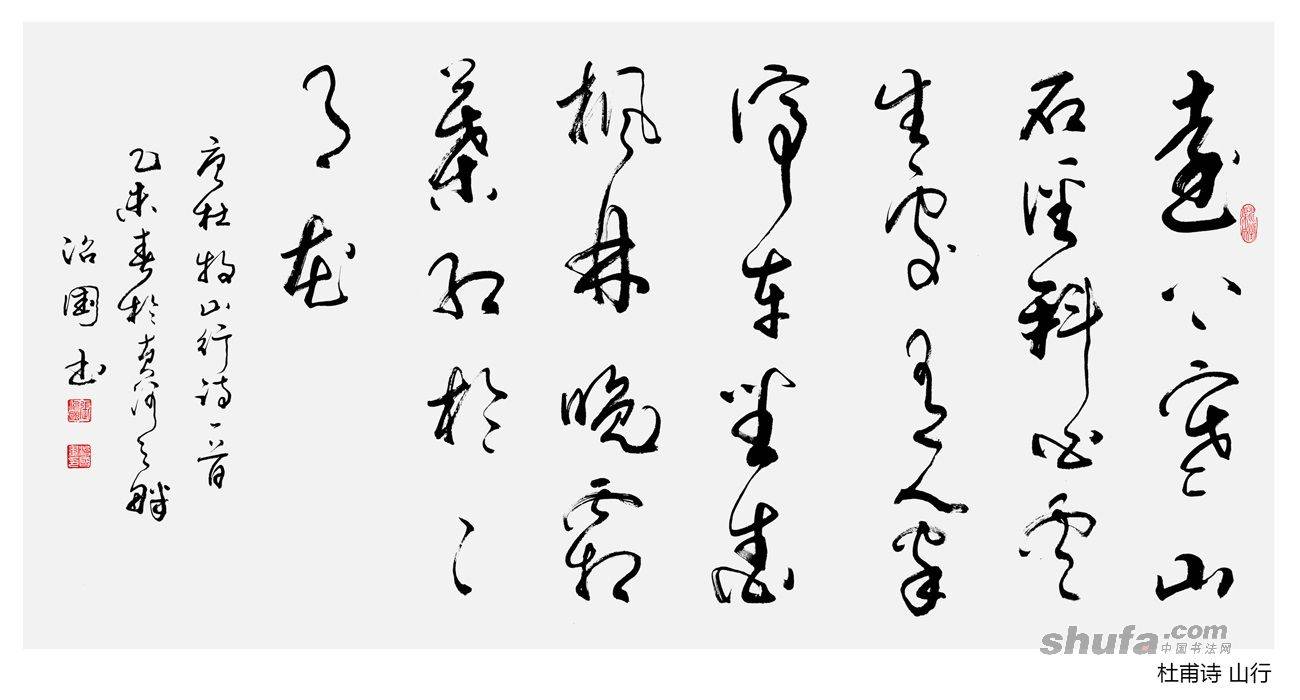 遠上寒山
石徑斜白雲
生處有人家
停車坐愛
楓林晚霜
葉紅於二
月花
唐杜牧山行詩一首
乙未春於黄河之畔
治國书
shufa.com
中国书法网
杜甫诗 山行